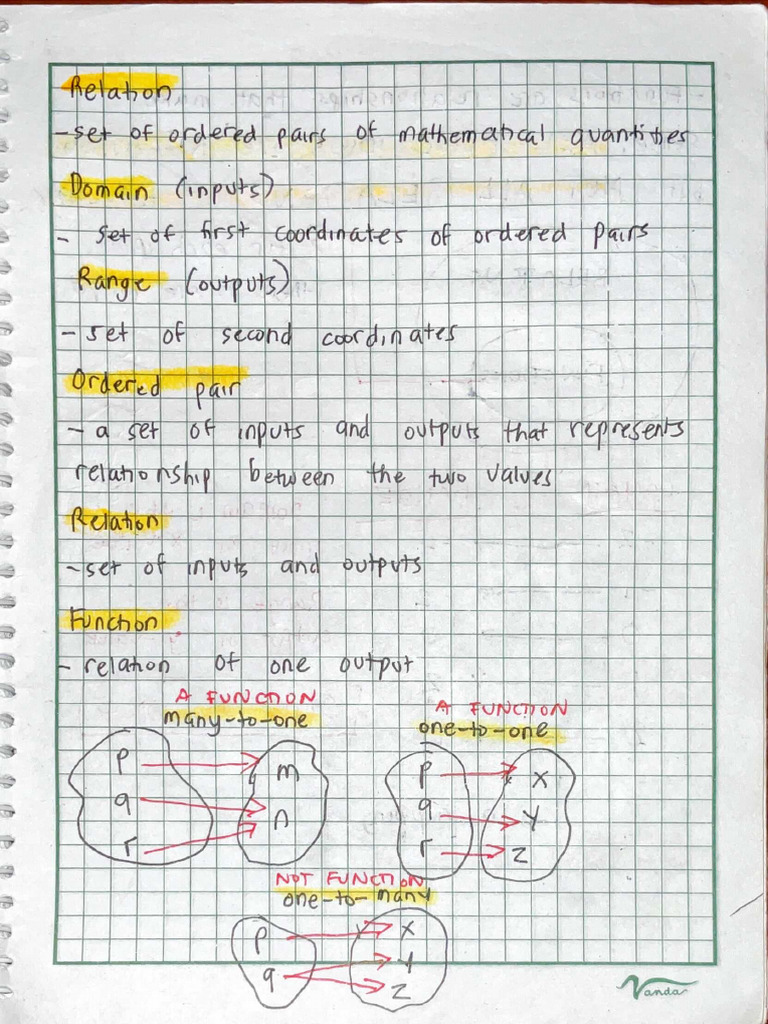 Relation
- set of ordered pairs of mathematical quantities
Domain (inputs)
- set of first coordinates of ordered pairs
Range (outputs)
- set of second coordinates
Ordered pair
- a set of inputs and outputs that represents
relationship between the two values
Relation
- set of inputs and outputs
Function
- relation of one output
A FUNCTION
many-to-one
p
q
r
m
n
A FUNCTION
one-to-one
p
q
r
x
y
z
NOT FUNCTION
one-to-many
p
q
x
y
z
Vanda